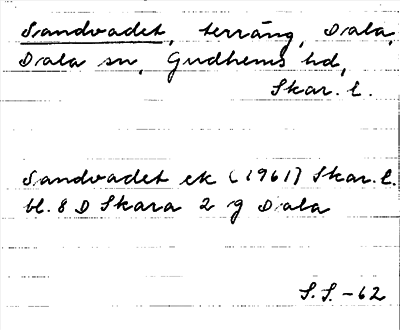 Sandvadet, terräng, Dala,
Dala sn, Gudhems hd,
Skar. l.
Sandvadet ek (1961) Skar. l.
bl. 8 D Skara 2 g Dala
S.S. -62